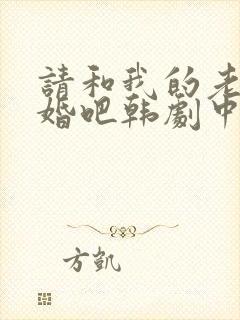 請和我的老
婚吧韩劇中
方凱